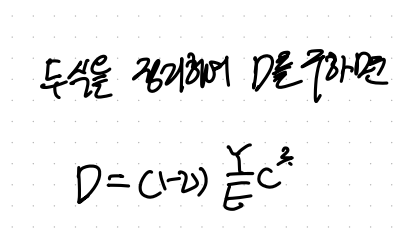 두식을 정리하여 D를 구하면
D = (1-2) \frac{Y}{E} C^{2}